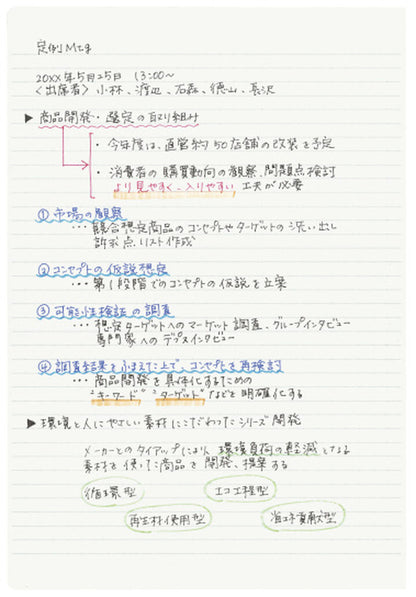 定例Mtg
20XX年5月25日 13:00〜
〈出席者〉小林、渡辺、石森、徳山、長沢
▶商品開発・選定の取り組み
・今年度は、直営約50店舗の改装を予定
・消費者の購買動向の観察、問題点検討
より見やすく、入りやすい工夫が必要
①市場の観察
・・・競合想定商品のコンセプトやターゲットの洗い出し
訴求点リスト作成
②コンセプトの仮説想定
・・・第1段階でのコンセプトの仮説を立案
③可能性検証の調査
・・・想定ターゲットへのマーケット調査、グループインタビュー
専門家へのデプスインタビュー
④調査結果をふまえた上で、コンセプトを再検討
・・・商品開発を具体化するための
"キーワード" "ターゲット"などを明確化する
▶環境と人にやさしい素材にこだわったシリーズ開発
メーカーとのタイアップにより環境負荷の軽減となる
素材を使った商品を開発、提案する
循環型 エコ工程型
再生材使用型 省エネ貢献型